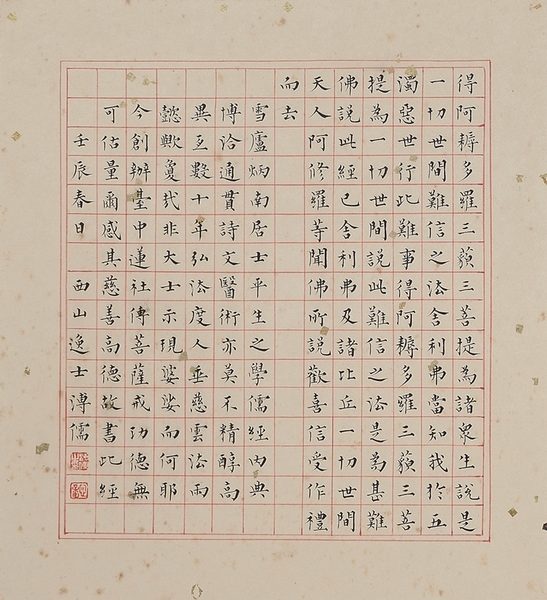 得阿耨多羅三藐三菩提為諸衆生說是
一切世間難信之法舍利弗當知我於五
濁惡世行此難事得阿耨多羅三藐三菩
提為一切世間說此難信之法是為甚難
佛說此經已舍利弗及諸比丘一切世間
天人阿修羅等聞佛所說歡喜信受作禮
而去
雪廬炳南居士平生之學儒經內典
博洽通貫詩文醫術亦莫不精醇高
異亙數十年弘法度人垂慈雲法雨
懿歟敻哉非大士示現娑婆而何耶
今創辦臺中蓮社傳菩薩戒功德無
可估量爾感其慈善高德故書此經
壬辰春日 西山逸士溥儒